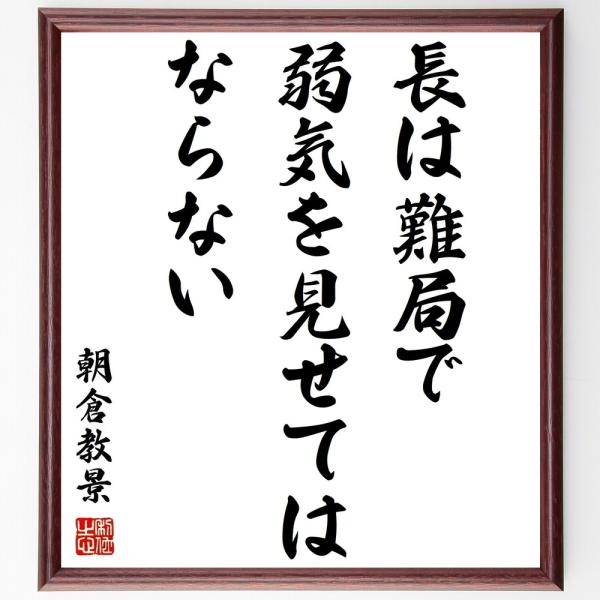 長は難局で
弱気を見せては
ならない
朝倉教景